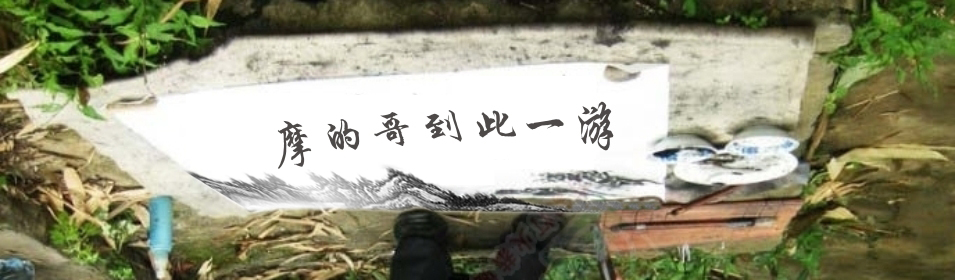 摩的哥到此一游